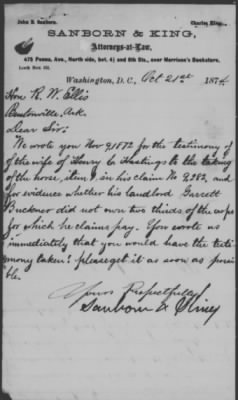 John B. Sanborn. Charles King.
SANBORN & KING,
Attorneys-at-Law,
475 Penna. Ave., North side, bet. 4½ and 6th Sts., over Morrison's Bookstore.
Lock Box
Washington, D. C., Oct 21st 1874
Hon R. W. Ellis
Bentonville, Ark.
Dear Sir:
We wrote you Nov 9, 1872 for the testimony of
of the wife of Henry C. Hastings to the taking
of the horse, item 1, in his claim No 9,282, and
for evidence whether his landlord Garrett
Buckner did not own two thirds of the crops
for which he claims pay. You wrote us
immediately that you would have the testi
mony taken! please get it as soon as possi
ble.
Yours Respectfully
Sanborn & King